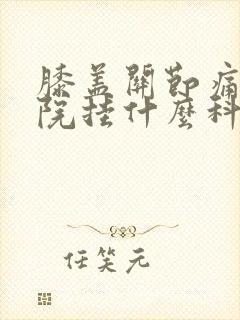 膝盖關節痛
院挂什麼科
任笑元